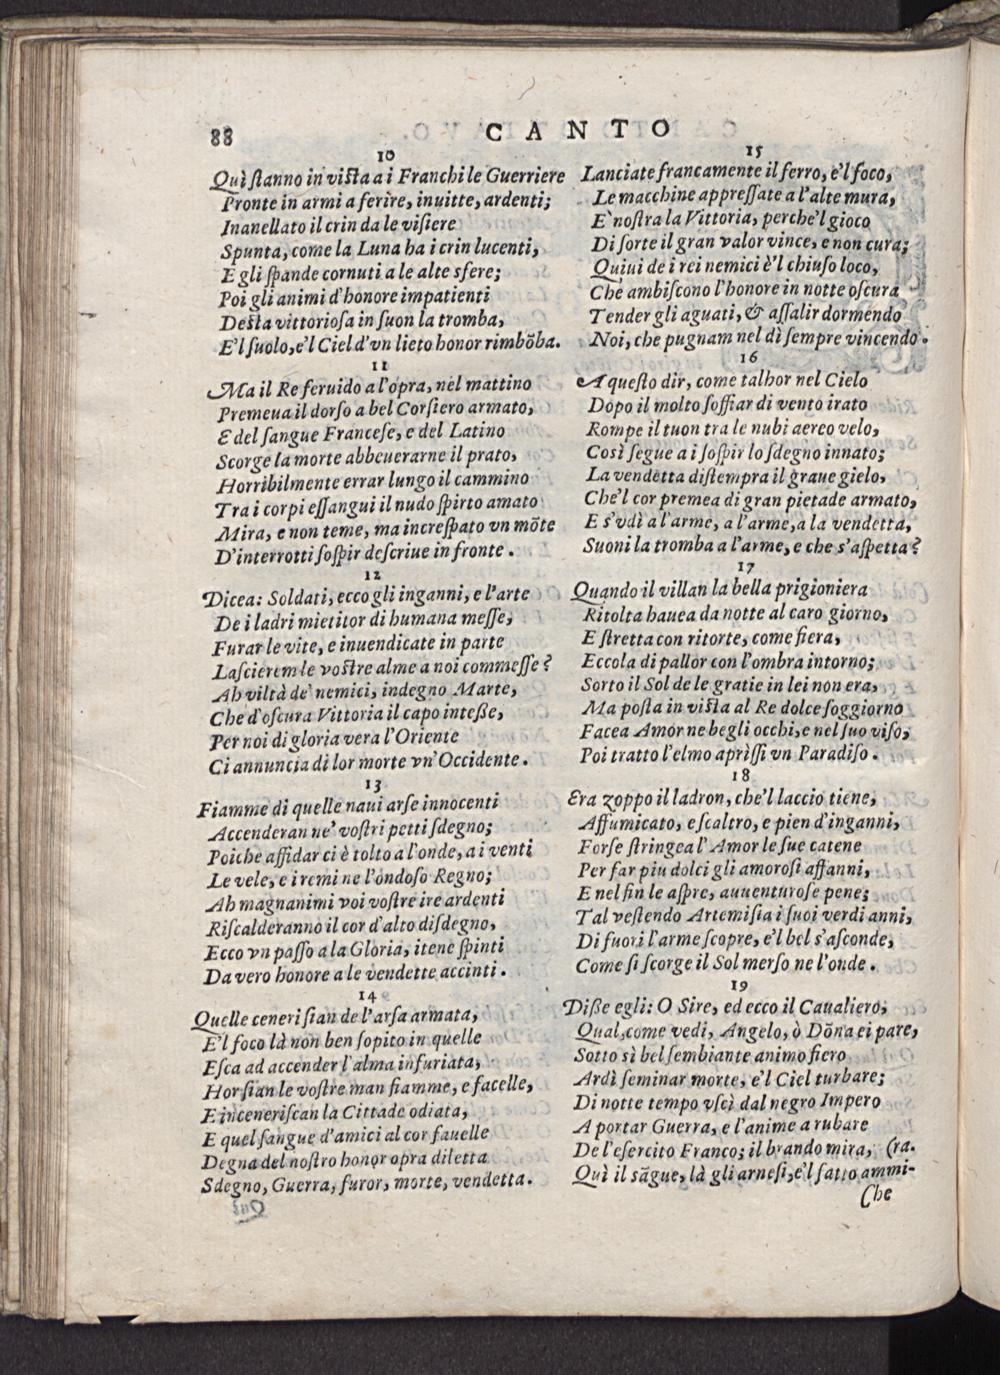 88
CANTO
10
Quì ſtanno in viſta a i Franchi le Guerriere
Pronte in armi a ferire, inuitte, ardenti;
Inanellato il crin da le viſiere
Spunta, come la Luna ha i crin lucenti,
E gli ſpande cornuti a le alte sfere;
Poi gli animi d'honore impatienti
Deſta vittorioſa in ſuon la tromba,
E'l ſuolo, e'l Ciel d'vn lieto honor rimbõba.
11
Ma il Re feruido a l'opra, nel mattino
Premeua il dorſo a bel Corſiero armato,
E del ſangue Franceſe, e del Latino
Scorge la morte abbeuerarne il prato,
Horribilmente errar lungo il cammino
Tra i corpi eſſangui il nudo ſpirto amato
Mira, e non teme, ma increſpato vn mõte
D'interrotti ſoſpir deſcriue in fronte.
12
Dicea: Soldati, ecco gli inganni, e l'arte
De i ladri mietitor di humana meſſe,
Furar le vite, e inuendicate in parte
Laſcierem le voſtre alme a noi commeſſe?
Ah viltà de' nemici, indegno Marte,
Che d'oſcura Vittoria il capo inteſſe,
Per noi di gloria vera l'Oriente
Ci annuncia di lor morte vn'Occidente.
13
Fiamme di quelle naui arſe innocenti
Accenderan ne' voſtri petti ſdegno;
Poiche affidarci è tolto a l'onde, a i venti
Le vele, e i remi ne l'ondoſo Regno;
Ah magnanimi voi voſtre ire ardenti
Riſcalderanno il cor d'alto diſdegno,
Ecco vn paſſo a la Gloria, itene ſpinti
Da vero honore a le vendette accinti.
14
Quelle ceneri ſian de l'arſa armata,
E'l foco là non ben ſopito in quelle
Eſca ad accender l'alma infuriata,
Hor ſian le voſtre man fiamme, e facelle,
E inceneriſcan la Cittade odiata,
E quel ſangue d'amici al cor fauelle
Degna del noſtro honor opra diletta
Sdegno, Guerra, furor, morte, vendetta.
15
Lanciate francamente il ferro, e'l foco,
Le macchine appreſſate a l'alte mura,
E' noſtra la Vittoria, perche'l gioco
Di ſorte il gran valor vince, e non cura;
Quiui de i rei nemici è'l chiuſo loco,
Che ambiſcono l'honore in notte oſcura
Tender gli aguati, & aſſalir dormendo
Noi, che pugnam nel dì ſempre vincendo.
16
A queſto dir, come talhor nel Cielo
Dopo il molto ſoffiar di vento irato
Rompe il tuon tra le nubi aereo velo,
Così ſegue a i ſoſpir lo ſdegno innato;
La vendetta diſtempra il graue gielo,
Che'l cor premea di gran pietade armato,
E s'vdì a l'arme, a l'arme, a la vendetta,
Suoni la tromba a l'arme, e che s'aſpetta?
17
Quando il villan la bella prigioniera
Ritolta hauea da notte al caro giorno,
E ſtretta con ritorte, come fiera,
Eccola di pallor con l'ombra intorno;
Sorto il Sol de le gratie in lei non era,
Ma poſta in viſta al Re dolce ſoggiorno
Facea Amor ne begli occhi, e nel ſuo viſo,
Poi tratto l'elmo aprìſſi vn Paradiſo.
18
Era zoppo il ladron, che'l laccio tiene,
Affumicato, e ſcaltro, e pien d'inganni,
Forſe ſtringea l'Amor le ſue catene
Per far piu dolci gli amoroſi affanni,
E nel fin le aſpre, auuenturoſe pene;
Tal veſtendo Artemiſia i ſuoi verdi anni,
Di fuori l'arme ſcopre, e'l bel s'aſconde,
Come ſi ſcorge il Sol merſo ne l'onde.
19
Diſſe egli: O Sire, ed ecco il Caualiero,
Qual, come vedi, Angelo, ò Dõna ei pare,
Sotto sì bel ſembiante animo fiero
Ardì ſeminar morte, e'l Ciel turbare;
Di notte tempo vſcì dal negro Impero
A portar Guerra, e l'anime a rubare
De l'eſercito Franco; il brando mira, (ra.
Quì il sãgue, là gli arneſi, e'l fatto ammi-
Che